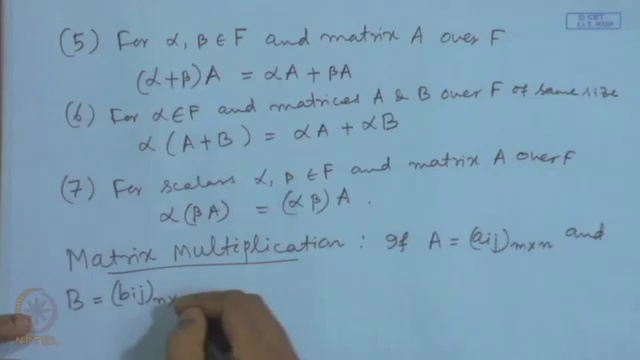 © CET
I.I.T. KGP
(5) For α, β ∈ F and matrix A over F
(α+β)A = αA + βA
(6) For α∈F and matrices A & B over F of same size
α(A+B) = αA + αB
(7) For scalars α, β ∈ F and matrix A over F
α(βA) = (αβ)A.
Matrix Multiplication : If A = (aij)m×n and
B = (bij)n×
NPTEL